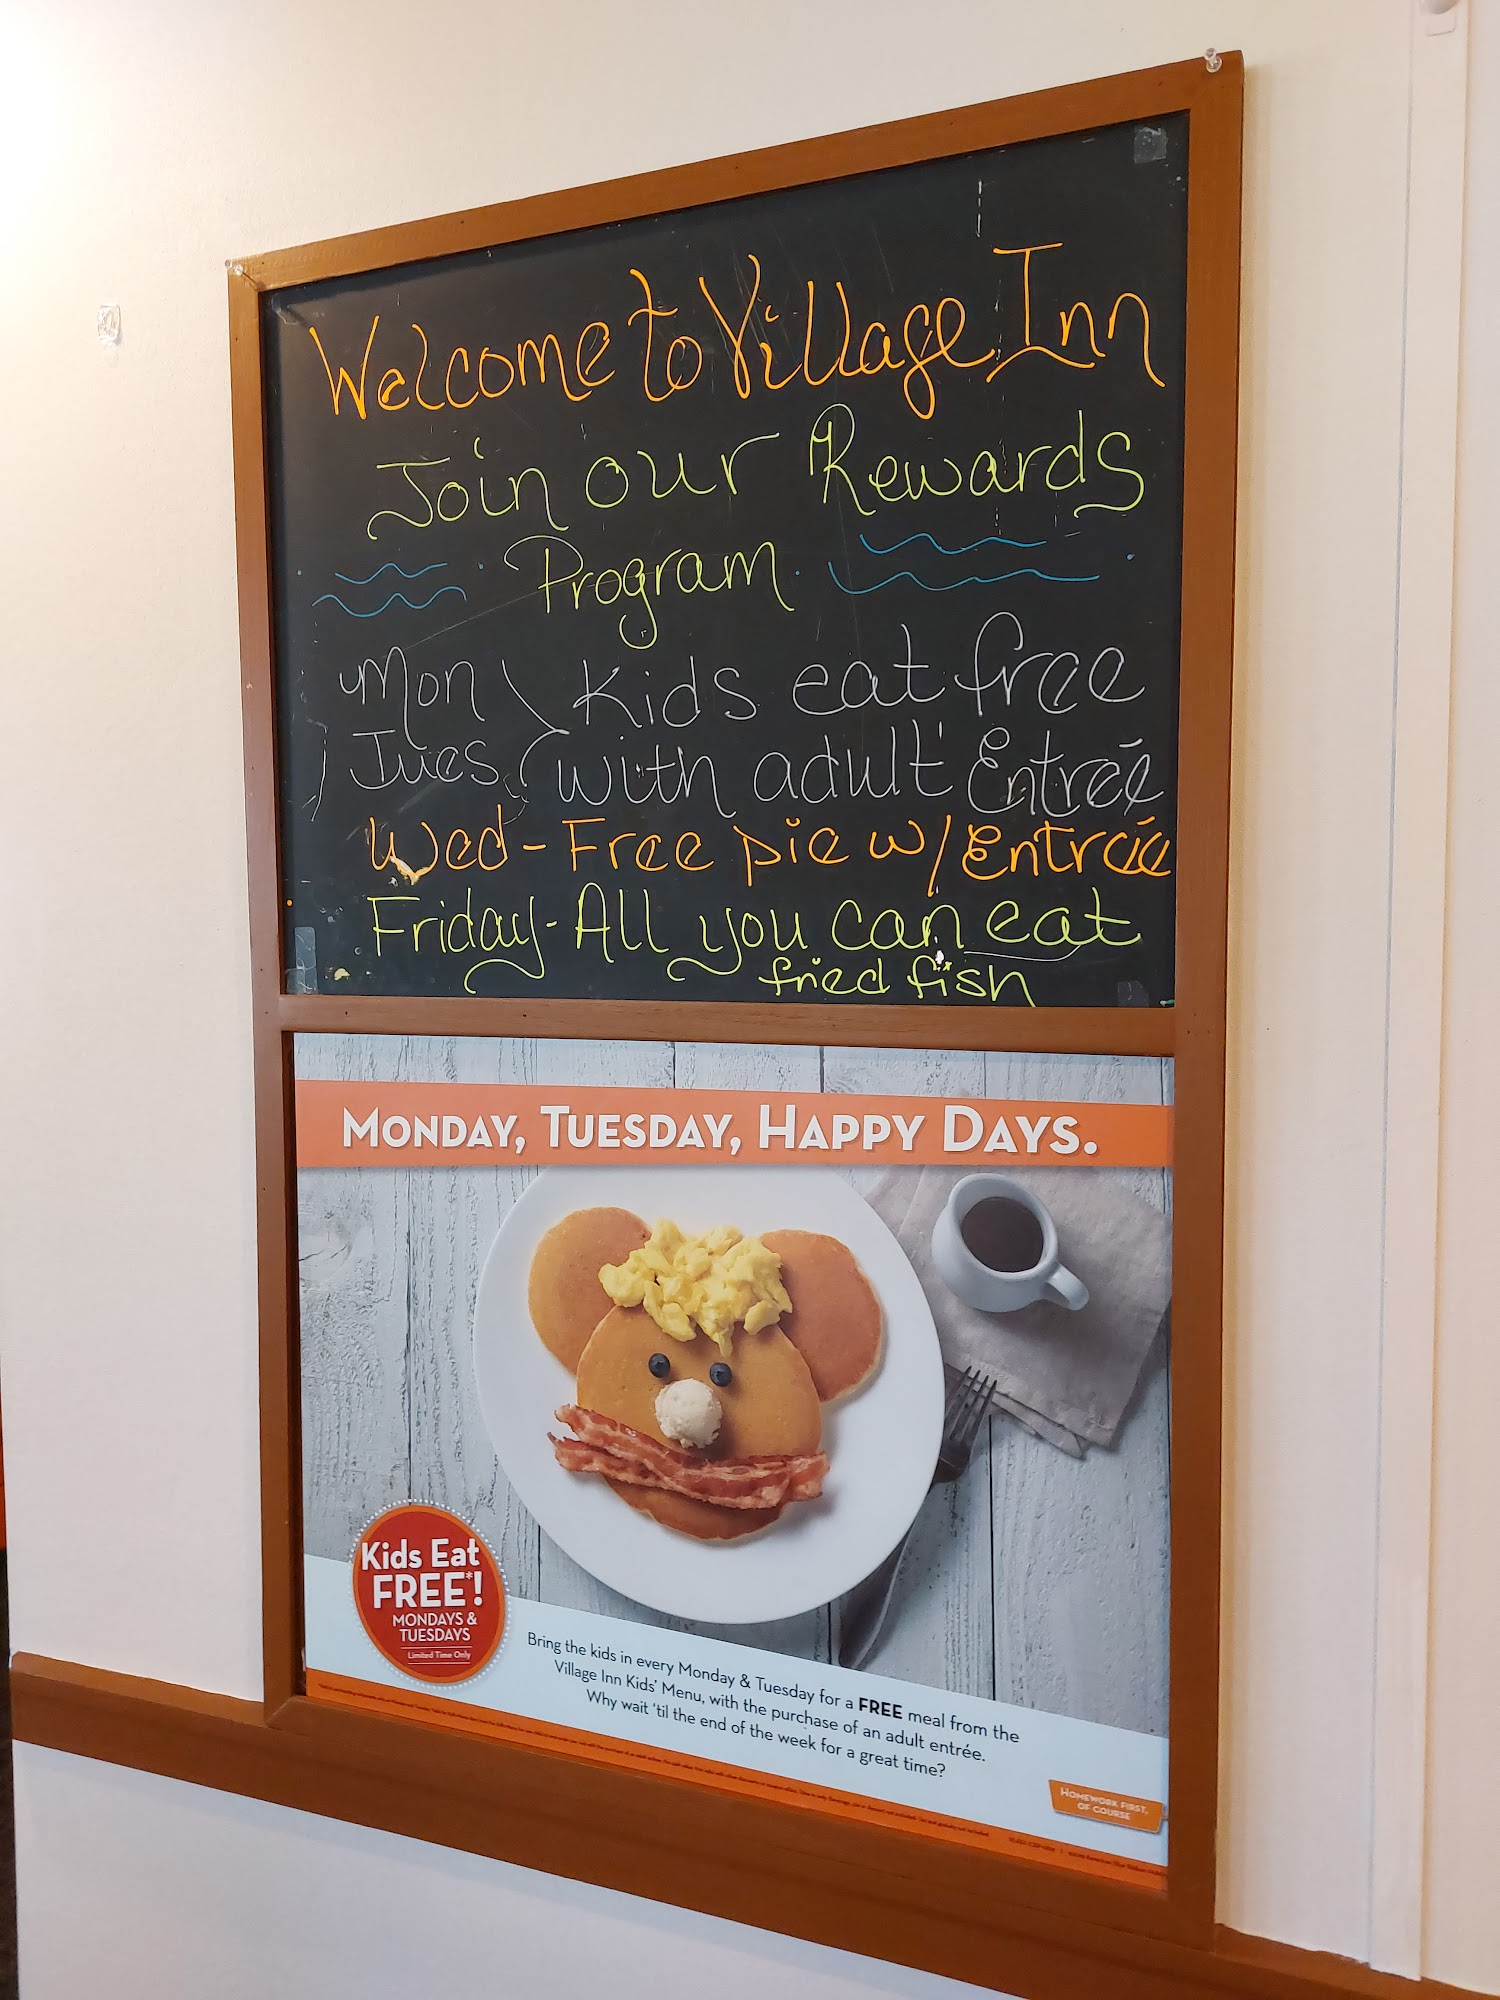 Welcome to Village Inn
Join our Rewards
Program
Mon Kids eat free
Tues with adult Entrée
Wed - Free pie w/ Entrée
Friday - All you can eat
fried fish
MONDAY, TUESDAY, HAPPY DAYS.
Kids Eat
FREE*!
MONDAYS &
TUESDAYS
Limited Time Only
Bring the kids in every Monday & Tuesday for a FREE meal from the
Village Inn Kids' Menu, with the purchase of an adult entrée.
Why wait 'til the end of the week for a great time?
HOMEWORK FIRST,
OF COURSE